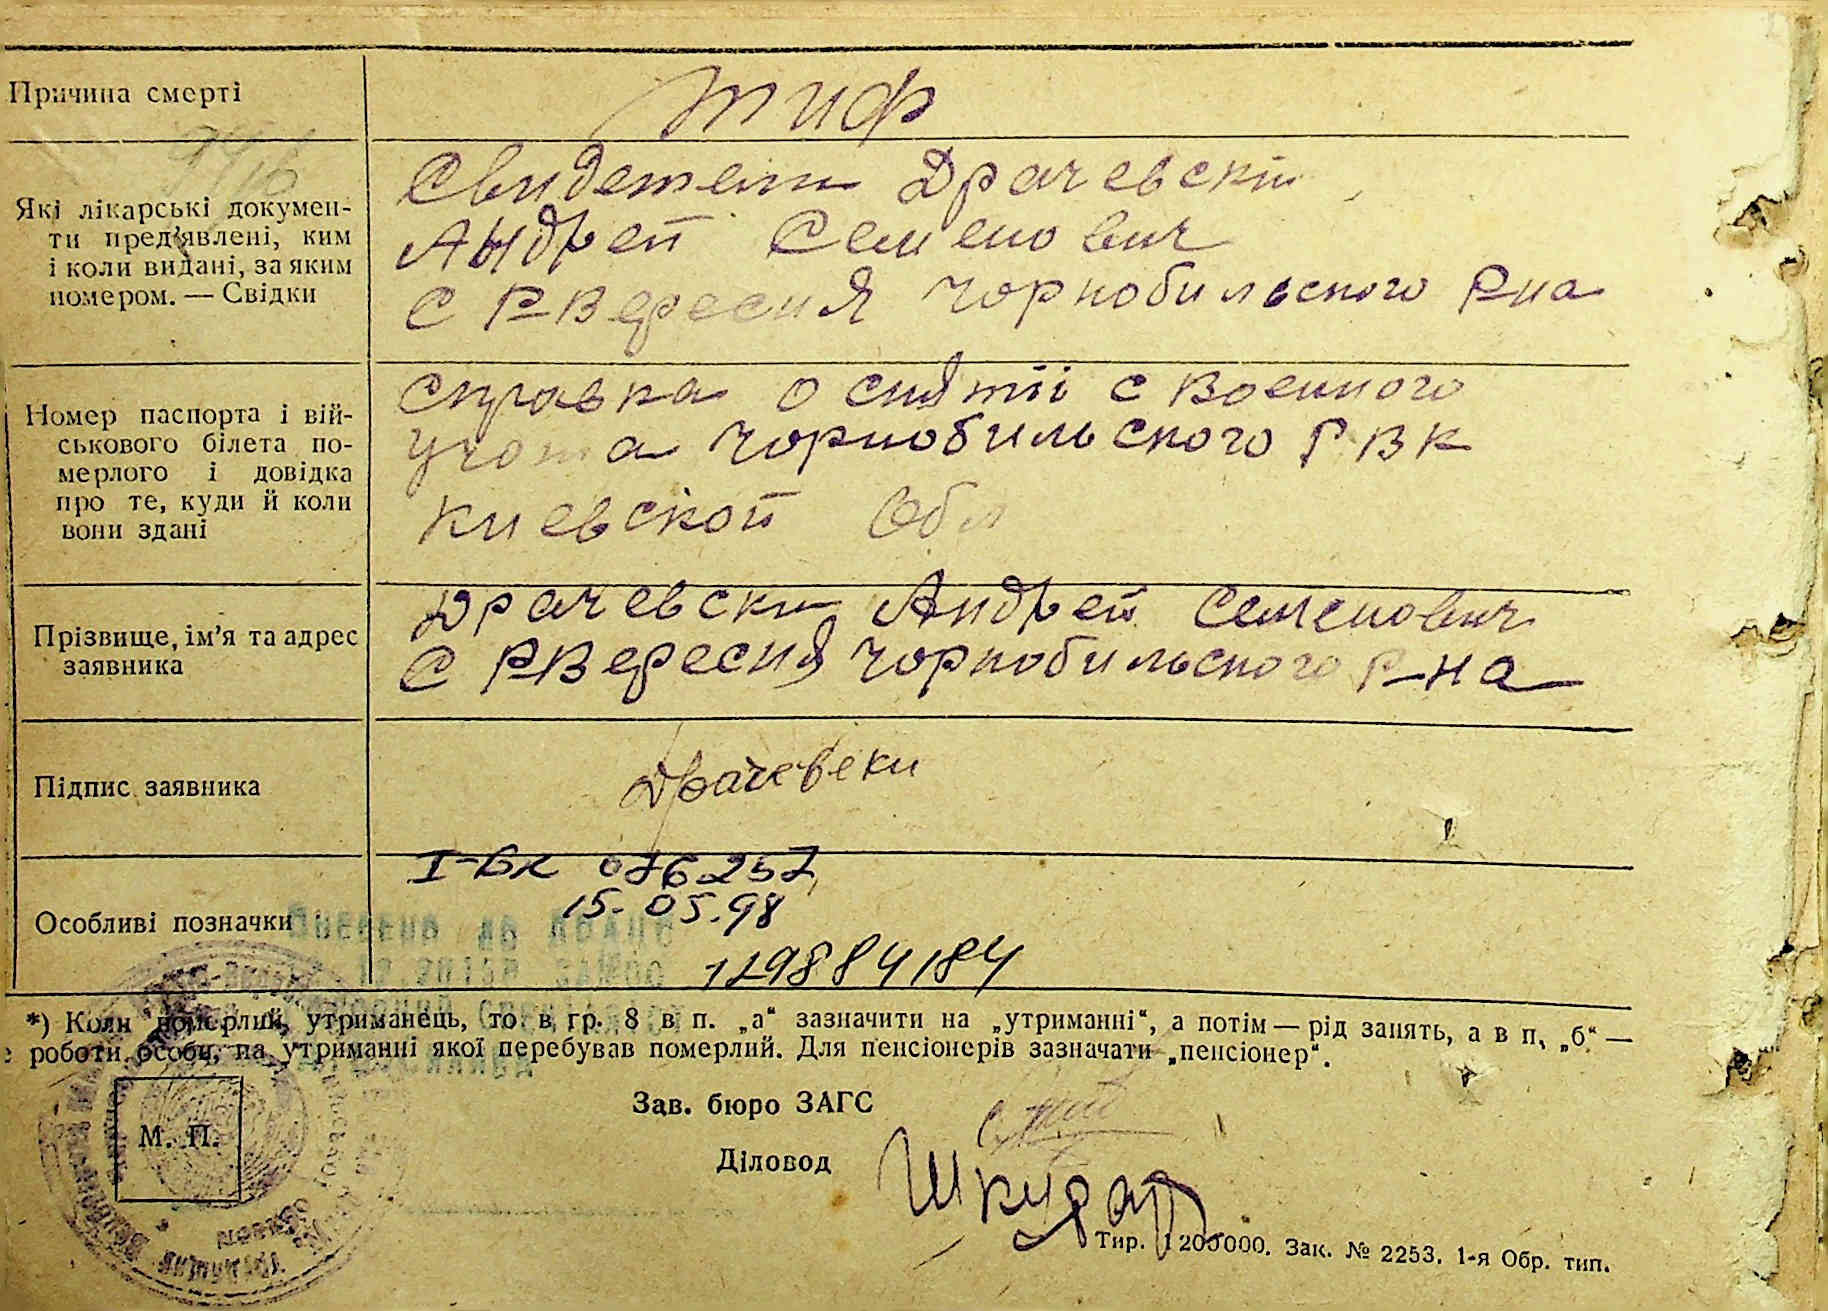 Причина смерті
тиф
Які лікарські докумен-
ти пред'явлені, ким
і коли видані, за яким
номером. — Свідки
Свидетели Драчевски
Андрей Семенович
С РВересня Чорнобильского Рна
Номер паспорта і вій-
ськового білета по-
мерлого і довідка
про те, куди й коли
вони здані
Справка о снятіі с военного
учота Чорнобильского РВК
Киевской Обл
Прізвище, ім'я та адрес
заявника
Драчевски Андрей Семенович
С РВересня Чорнобильского Р-на
Підпис заявника
Драчевски
Особливі позначки
I-БК 076257
15.05.98
129884184
*) Коли померлий, утриманець, то в гр. 8 в п. „а“ зазначити на „утриманні“, а потім — рід занять, а в п. „б“ —
роботи особи, на утриманні якої перебував померлий. Для пенсіонерів зазначати „пенсіонер“.
Зав. бюро ЗАГС
М. П.
Діловод
Шкурат
Тир. 1200000. Зак. № 2253. 1-я Обр. тип.